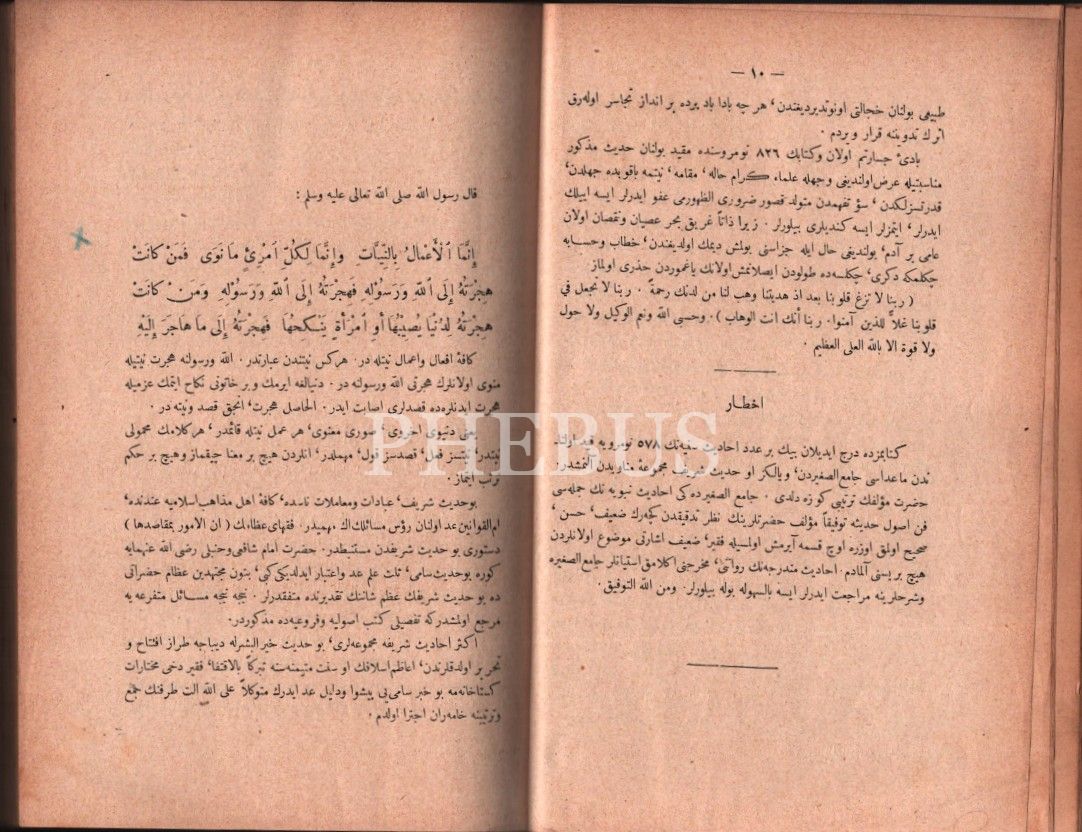 — ١٠ —
طبیعی بولنان خجالتی اونوتدیردیغندن، هر چه بادا باد پرده بر انداز تجاسر اوله‌رق
اثرك تدوینه قرار ویردم .
بادئ جسارتم اولان وكتابك ٨٢٦ نومروسنده مقید بولنان حدیث مذكور
مناسبتیله عرض اولندیغی وجهله علماء كرام حاله، مقامه، نیتمه باقوبده جهلدن،
قدرتسزلكدن، سؤ تفهمدن متولد قصور ضروری الظهورمی عفو ایدرلر ایسه ایيلك
ایدرلر، ایتمزلر ایسه كندیلری بیلورلر . زیرا ذاتاً غریق بحر عصیان ونقصان اولان
عامی بر آدم، بولندیغی حال ایله جزاسنی بولمش دیمك اولدیغندن، خطاب وحسابه
چكلمكه دكری، چكلسه‌ده طولودن ایصلانمش اولانك یاغموردن حذری اولماز .
( ربنا لا تزغ قلوبنا بعد اذ هدیتنا وهب لنا من لدنك رحمةً . ربنا لا تجعل في
قلوبنا غلاًّ للذین آمنوا . ربنا أنك انت الوهاب ) . وحسبی الله ونعم الوكیل ولا حول
ولا قوة الا بالله العلی العظیم .
اخطار
كتابمزده درج ایدیلان بیك بر عدد احادیث ٥٧٨ نومرویه قید اولنـ
ندن ماعداسی جامع الصغیردن، ویالكز او حدیث شریف مجموعۀ مناویدن آلنمشدر .
حضرت مؤلفك ترتیبی كوزه دلدی . جامع الصغیرده‌كی احادیث نبویه نك جمله‌سی
فن اصول حدیثه توفیقاً مؤلف حضرتلرینك نظر تدقیقدن كچه‌رك ضعیف، حسن،
صحیح اولمق اوزره اوچ قسمه آیرمش اولمسیله فقیر، ضعیف اشارتی موضوع اولانلردن
هیچ بریسنی آلمادم . احادیث مندرجه‌نك رواتنی، مخرجنی اكلامق استیانلر جامع الصغیره
وشرحلرینه مراجعت ایدرلر ایسه بالسهوله بوله بیلورلر . ومن الله التوفیق .
قال رسول الله صلی الله تعالی علیه وسلم :
إِنَّمَا الْأَعْمَالُ بِالنِّيَّاتِ وإِنَّمَا لِكُلِّ امْرِئٍ مَا نَوَى فَمَنْ كَانَتْ
هِجْرَتُهُ إِلَى اللهِ وَرَسُولِهِ فَهِجْرَتُهُ إِلَى اللهِ وَرَسُولِهِ وَمَنْ كَانَتْ
هِجْرَتُهُ لدُنْيَا يُصِيبُهَا أوِ امْرَأةٍ يَنْكِحُهَا فَهِجْرَتُهُ إِلَى مَا هَاجَرَ إِلَيْهِ
كافۀ افعال واعمال نیتله در . هركس نیتندن عبارتدر . الله ورسولنه هجرت نیتیله
منوی اولانلرك هجرتی الله ورسولنه در . دنیالغه ایرمك و بر خاتونی نكاح ایتمك عزمیله
هجرت ایدنلرده قصدلری اصابت ایدر . الحاصل هجرت، انجق قصد ونیته در .
یعنی دنیوی، اخروی، صوری معنوی، هر عمل نیتله قائمدر، هر كلامك محمولی
نیتدر، نیتسز فعل، قصدسز قول، مهملدر، انلردن هیچ بر معنا چیقماز وهیچ بر حكم
ترتب ایتماز .
بو حدیث شریف، عبادات ومعاملات ناسده، كافۀ اهل مذاهب اسلامیه عندنده،
ام القوانین عد اولنان رؤس مسائلك اك مهمیدر . فقهای عظامك ( ان الامور بمقاصدها )
دستوری بو حدیث شریفدن مستنبطدر . حضرت امام شافعی وحنبلی رضی الله عنهمایه
كوره بو حدیث سامی، ثلث علم عد واعتبار ایدلدیكی كبی، بتون مجتهدین عظام حضراتی
ده بو حدیث شریفك عظم شاننك تقدیرنده متفقدرلر . نیجه نیجه مسائل متفرعه یه
مرجع اولمشدر كه تفصیلی كتب اصولیه وفروعیه‌ده مذكوردر .
اكثر احادیث شریفه مجموعه‌لری، بو حدیث خیر البشرله دیباجه طراز افتتاح و
تحریر اولدقلرندن، اعاظم اسلافك او سنت متیمنه‌سنه تبركاً بالاقتفا، فقیر دخی مختارات
كستاخانه‌مه بو خبر سامی‌یی پیشوا ودلیل عد ایدرك متوكلاً علی الله الت طرفنك جمع
وترتیبنه خامه‌ران اجترا اولدم .
PHEBUS